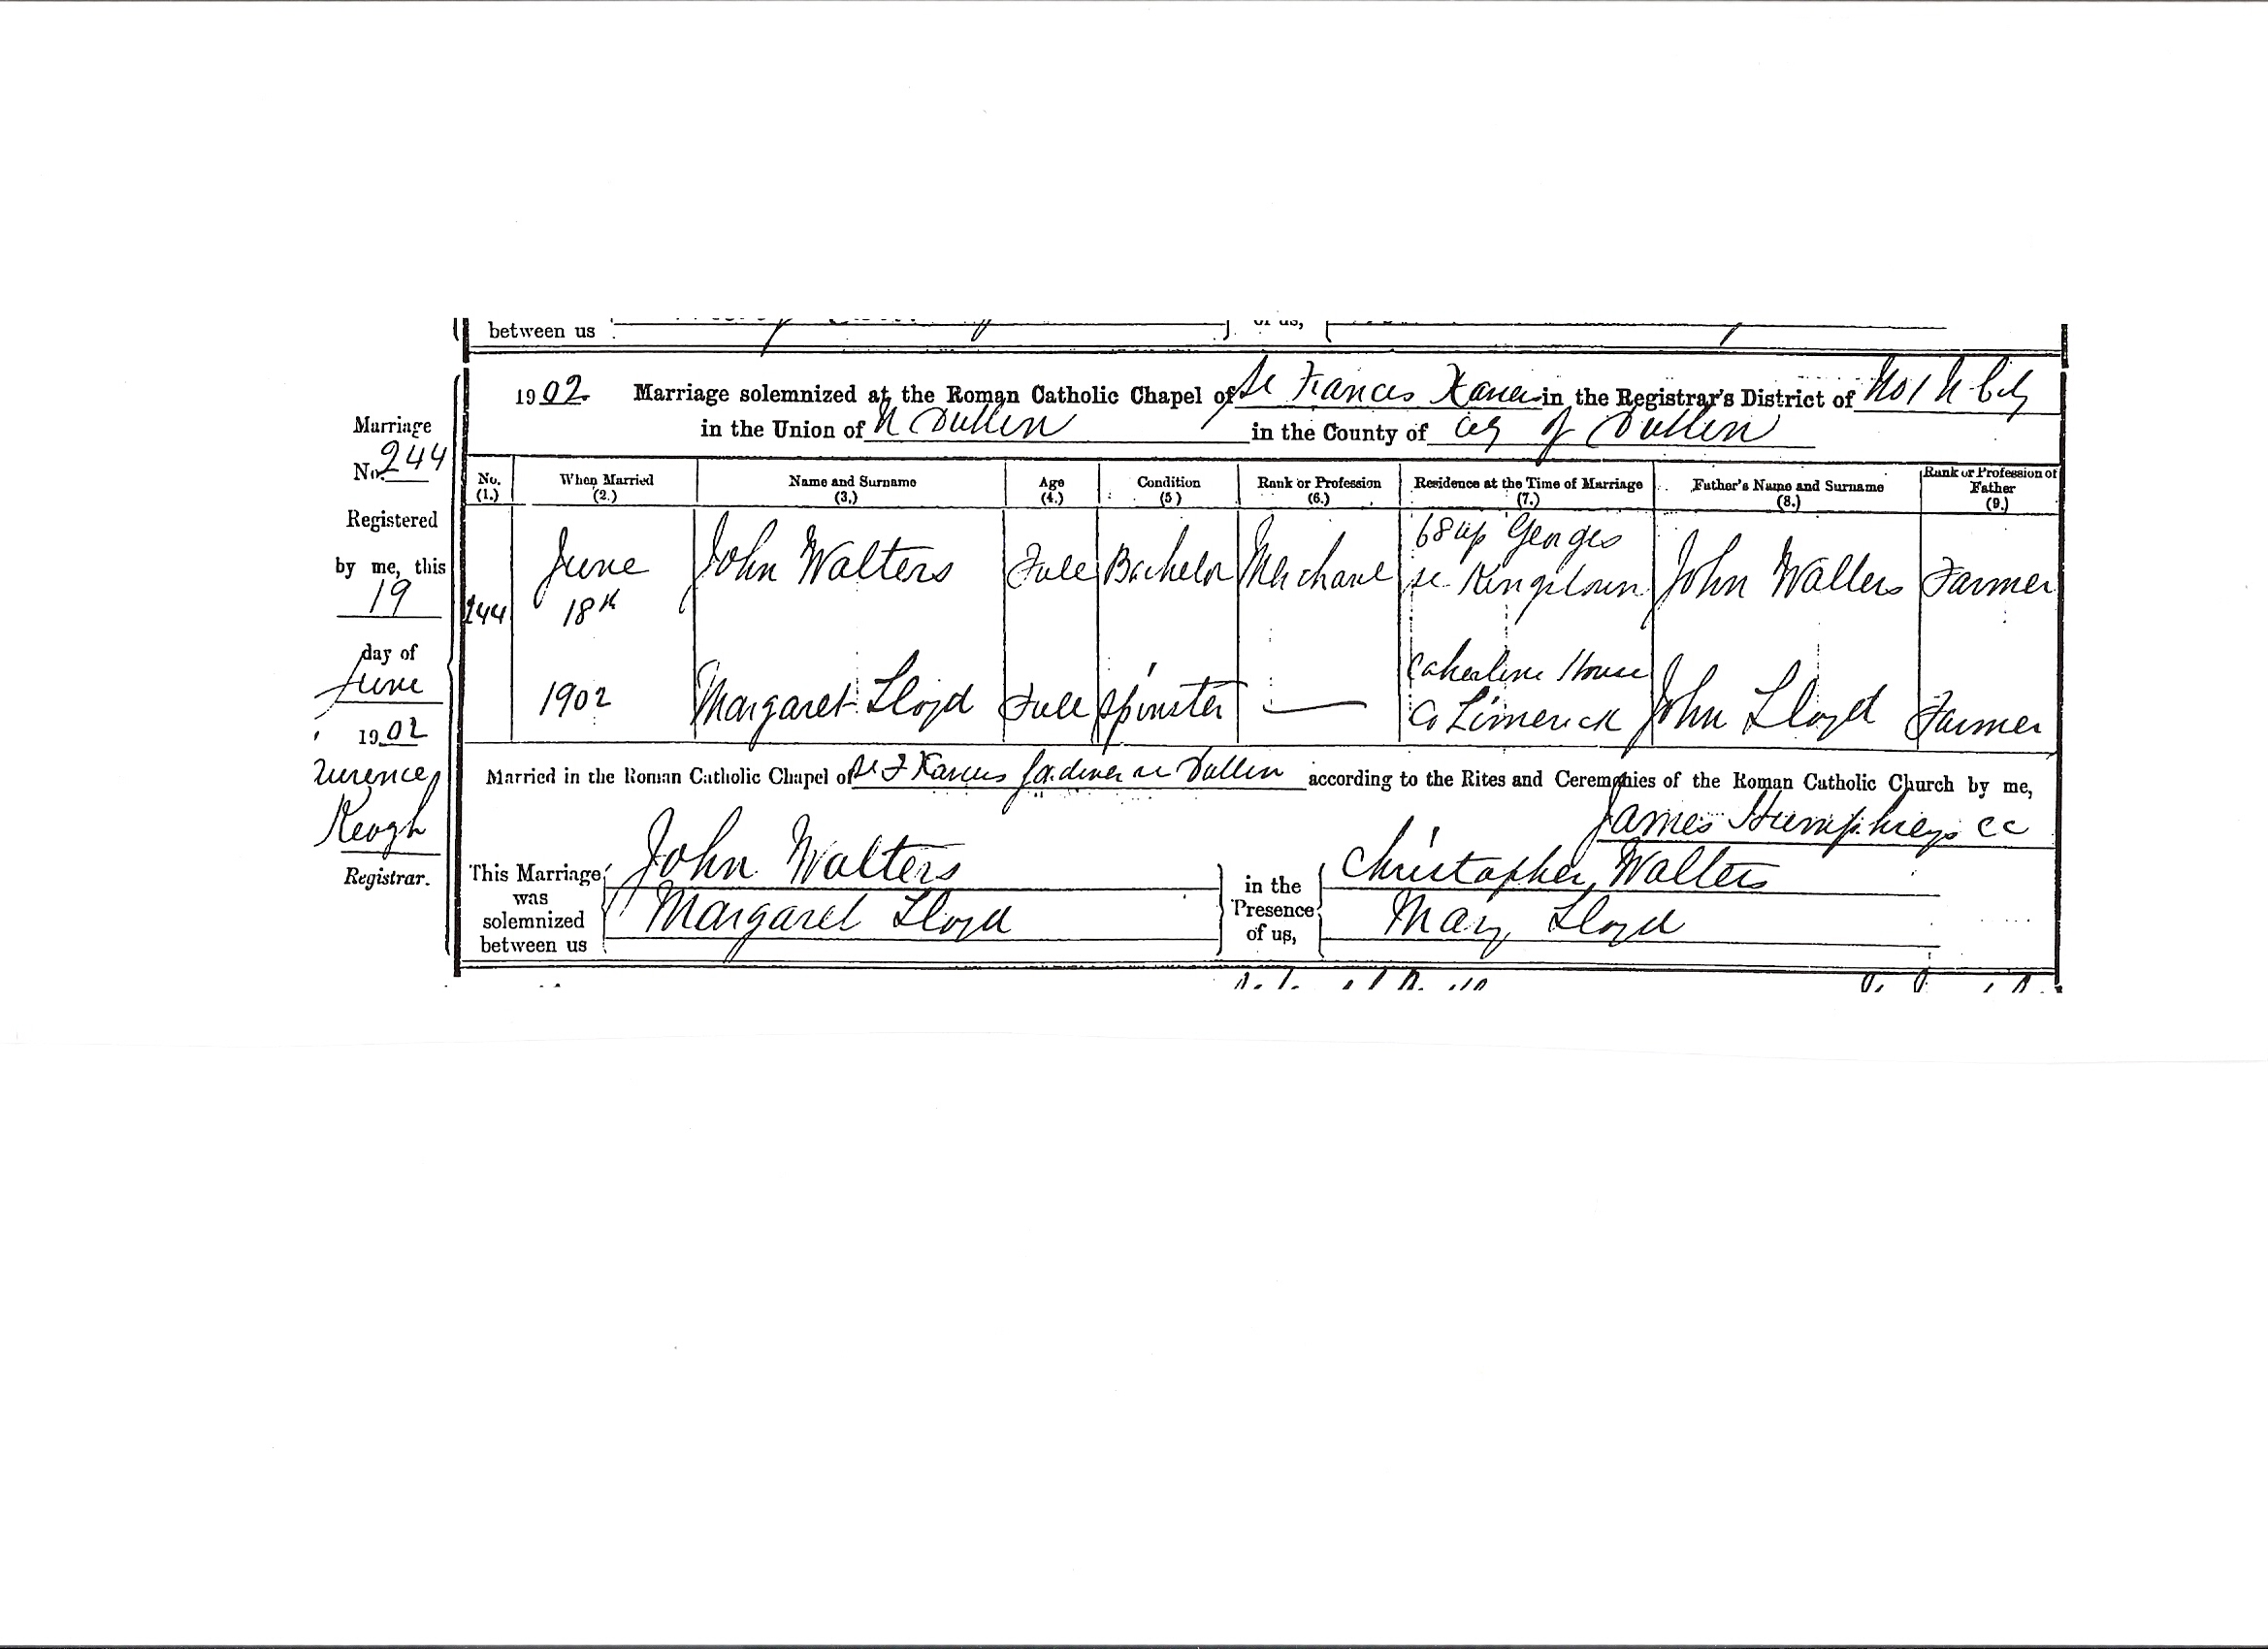 between us of us,
1902 Marriage solemnized at the Roman Catholic Chapel of St Frances Xavier in the Registrar's District of No 1 N City
in the Union of N Dublin in the County of City of Dublin
Marriage
No. 244
Registered
by me, this
19
day of
June
1902
Keogh
Registrar.
No. When Married Name and Surname Age Condition Rank or Profession Residence at the Time of Marriage Father's Name and Surname Rank or Profession of Father
(1.) (2.) (3.) (4.) (5) (6.) (7.) (8.) (9.)
244 June 18th John Walters Full Bachelor 68 up Georges St Kingstown John Walters Farmer
1902 Margaret Lloyd Full Spinster — House Co Limerick John Lloyd Farmer
Married in the Roman Catholic Chapel of St F Xavier Gardiner St Dublin according to the Rites and Ceremonies of the Roman Catholic Church by me,
James Humphreys CC
This Marriage was solemnized between us John Walters
Margaret Lloyd
in the Presence of us, Christopher Walters
Mary Lloyd